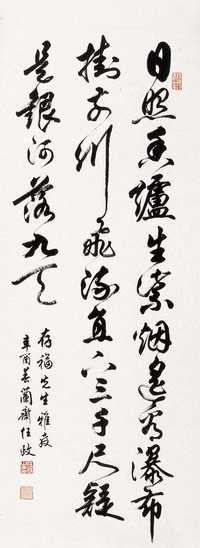 日照香爐生紫烟遙看瀑布
掛前川飛流直下三千尺疑
是銀河落九天
存福先生雅教
辛酉春蘭齋任政